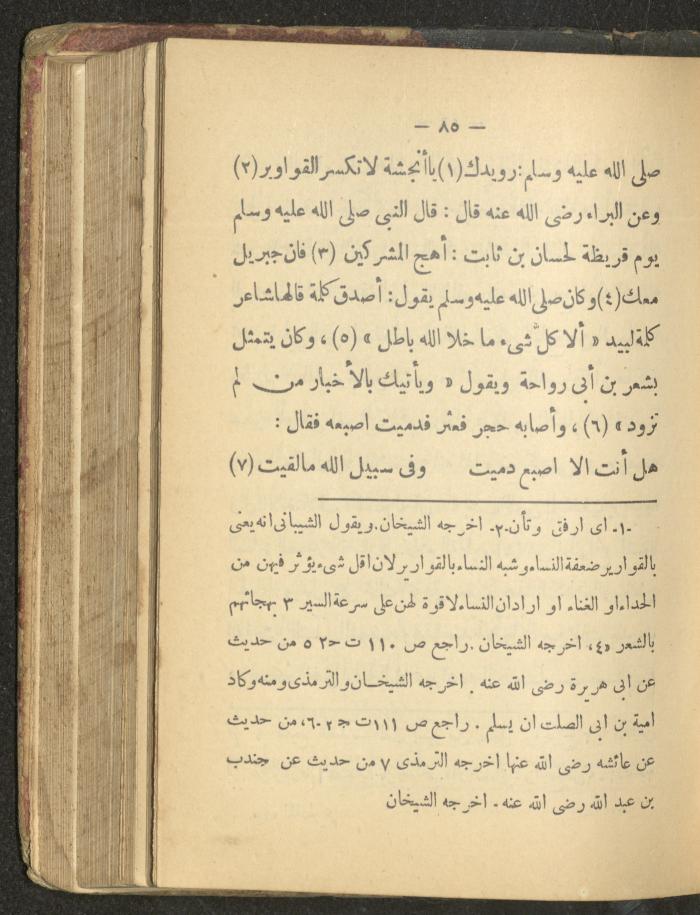 — ٨٥ —
صلى الله عليه وسلم: رويدك (١) ياأنجشة لاتكسر القواوير (٢)
وعن البراء رضى الله عنه قال : قال النبى صلى الله عليه وسلم
يوم قريظة لحسان بن ثابت : أهج المشركين (٣) فان جبريل
معك (٤) وكان صلى الله عليه وسلم يقول: أصدق كلمة قالها شاعر
كلمة لبيد « ألا كلّ شىء ما خلا الله باطل » (٥) ، وكان يتمثل
بشعر بن أبى رواحة ويقول « ويأتيك بالأخبار من لم
تزود » (٦) ، وأصابه حجر فعثر فدميت اصبعه فقال :
هل أنت الا اصبع دميت وفى سبيل الله مالقيت (٧)
-١- اى ارفق وتأن -٢- اخرجه الشيخان. ويقول الشيبانى انه يعنى
بالقوارير ضعفة النساء وشبه النساء بالقوارير لان اقل شىء يؤثر فيهن من
الحداء او الغناء او ارادان النساء لاقوة لهن على سرعة السير ٣ بهجائهم
بالشعر «٤، اخرجه الشيخان . راجع ص ١١٠ ت ج٢ ٥ من حديث
عن ابى هريرة رضى الله عنه . اخرجه الشيخان والترمذى ومنه وكاد
امية بن ابى الصلت ان يسلم . راجع ص ١١١ ت ج ٢ -٦، من حديث
عن عائشه رضى الله عنها اخرجه الترمذى ٧ من حديث عن جندب
بن عبد الله رضى الله عنه - اخرجه الشيخان